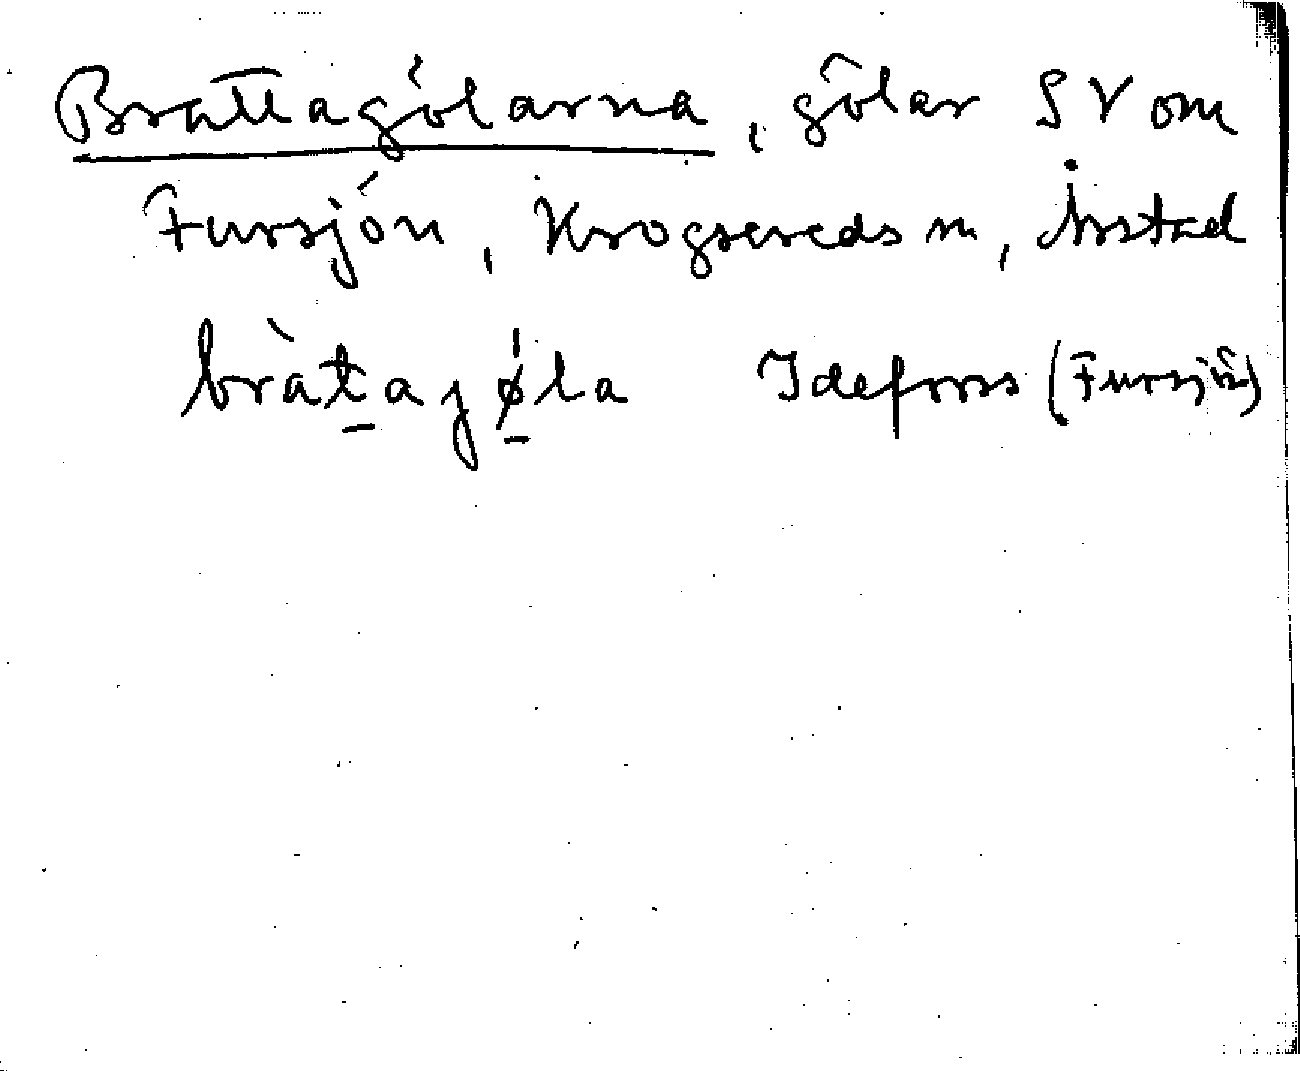 Brattagölarna, gölar SV om
Fursjön, Krogsereds sn, Årstad
bràt̲agø̲̍la Idefors (Fursjön)